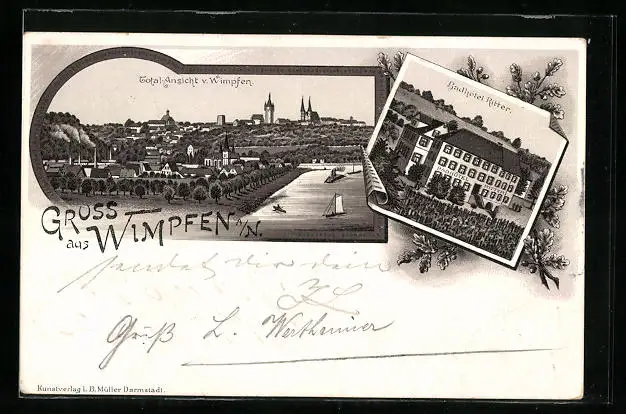 Total-Ansicht v. Wimpfen.
Badhotel Ritter.
GRUSS
aus WIMPFEN a/N.
sendet dir dein
Gruß L. Wertheimer
Kunstverlag i. B. Müller Darmstadt.